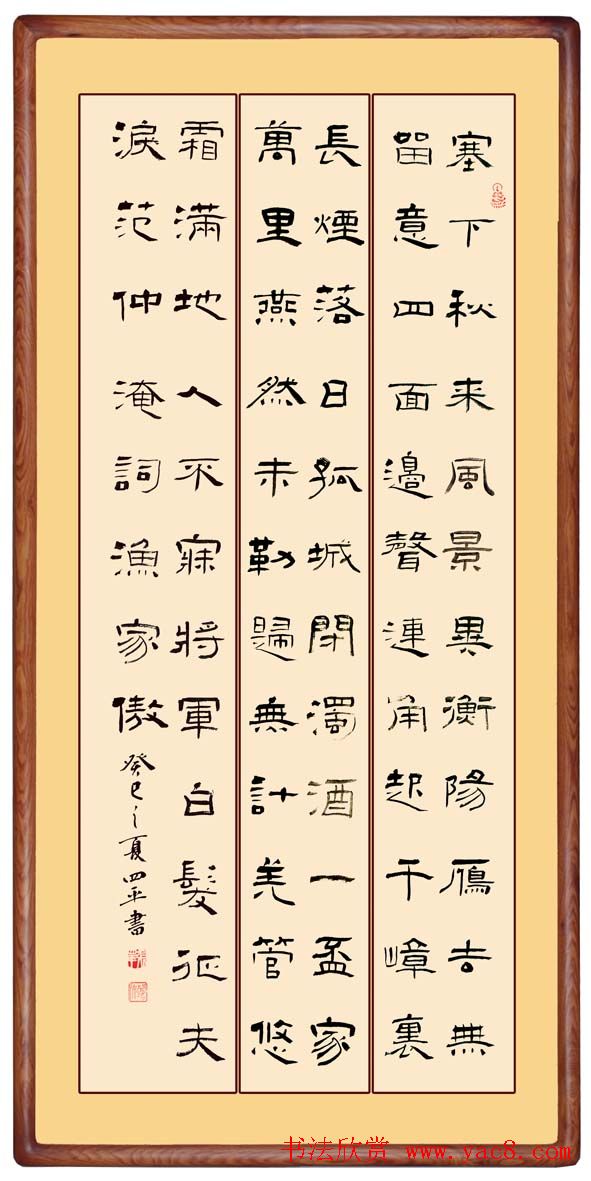 塞下秋来風景異衡陽鴈去無
留意四面邊聲連角起千嶂裏
長煙落日孤城閉濁酒一盃家
萬里燕然未勒歸無計羌管悠
霜滿地人不寐將軍白髮征夫
淚范仲淹詞漁家傲
癸巳之夏四平書
书法欣赏 www.yac8.com